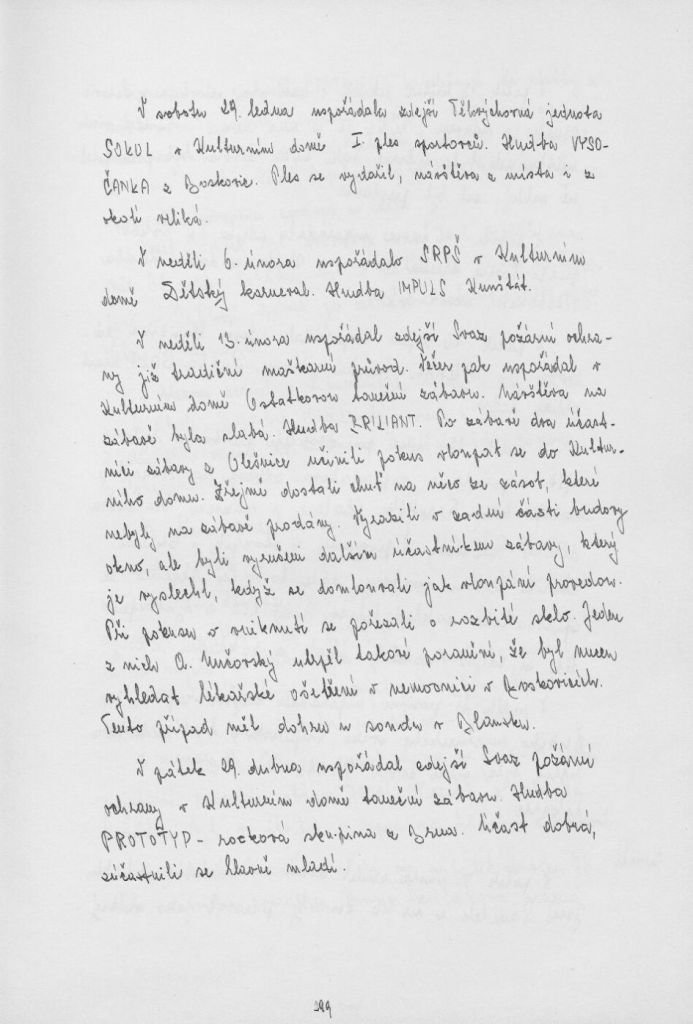 V sobotu 29. ledna uspořádala zdejší Tělovýchovná jednota
SOKOL v Kulturním domě I. ples sportovců. Hudba VYSO-
ČANKA z Boskovic. Ples se vydařil, návštěva z místa i z
okolí veliká.
V neděli 6. února uspořádalo SRPŠ v Kulturním
domě Dětský karneval. Hudba IMPULS Kunštát.
V neděli 13. února uspořádal zdejší Svaz požární ochra-
ny již tradiční maškarní průvod. Večer pak uspořádal v
Kulturním domě Ostatkovou taneční zábavu. Návštěva na
zábavě byla slabá. Hudba BRILIANT. Po zábavě dva účast-
níci zábavy z Olešnice učinili pokus vloupat se do Kultur-
ního domu. Zřejmě dostali chuť na něco ze zásob, které
nebyly na zábavě prodány. Vyrazili v zadní části budovy
okno, ale byli vyrušeni dalším účastníkem zábavy, který
je vyslechl, když se domlouvali jak vloupání provedou.
Při pokusu o vniknutí se pořezali o rozbité sklo. Jeden
z nich utrpěl takové poranění, že byl nucen
vyhledat lékařské ošetření v nemocnici v Boskovicích.
Tento případ měl dohru u soudu v Blansku.
V pátek 29. dubna uspořádal zdejší Svaz požární
ochrany v Kulturním domě taneční zábavu. Hudba
PROTOTYP - rocková skupina z Brna. Účast dobrá,
zúčastnili se hlavně mladí.